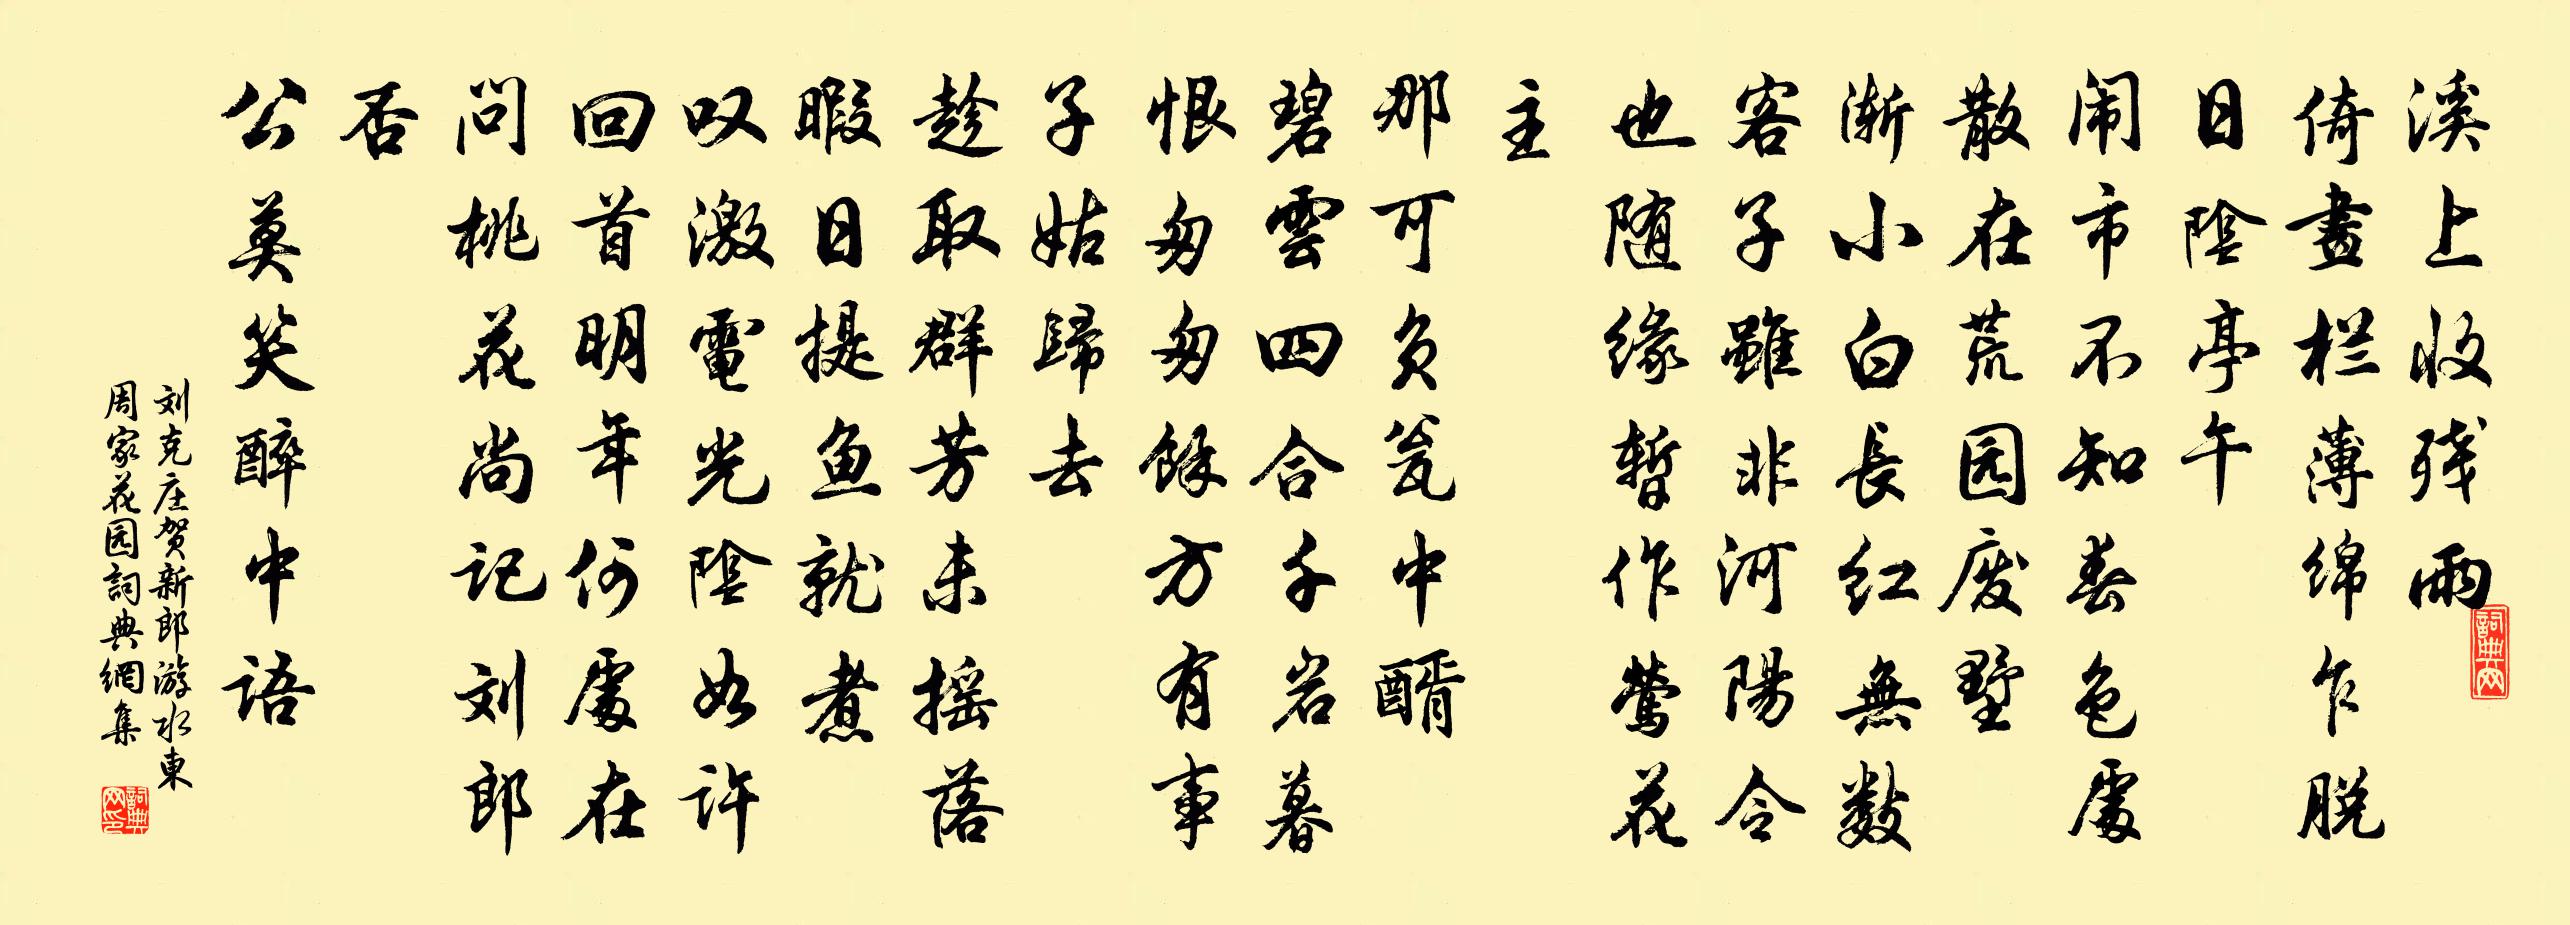 溪上收残雨
倚畫栏薄绵乍脱
日陰亭午
闹市不知春色處
散在荒园废墅
渐小白長红無数
客子雖非河陽令
也随缘暂作莺花
主
那可负瓮中醑
碧雲四合千岩暮
恨匆匆餘方有事
子姑歸去
趁取群芳未摇落
暇日提鱼就煮
叹激電光陰如许
回首明年何處在
问桃花尚记刘郎
否
公莫笑醉中语
刘克庄贺新郎游水東
周家花园詞典網集
詞典网
詞典网印